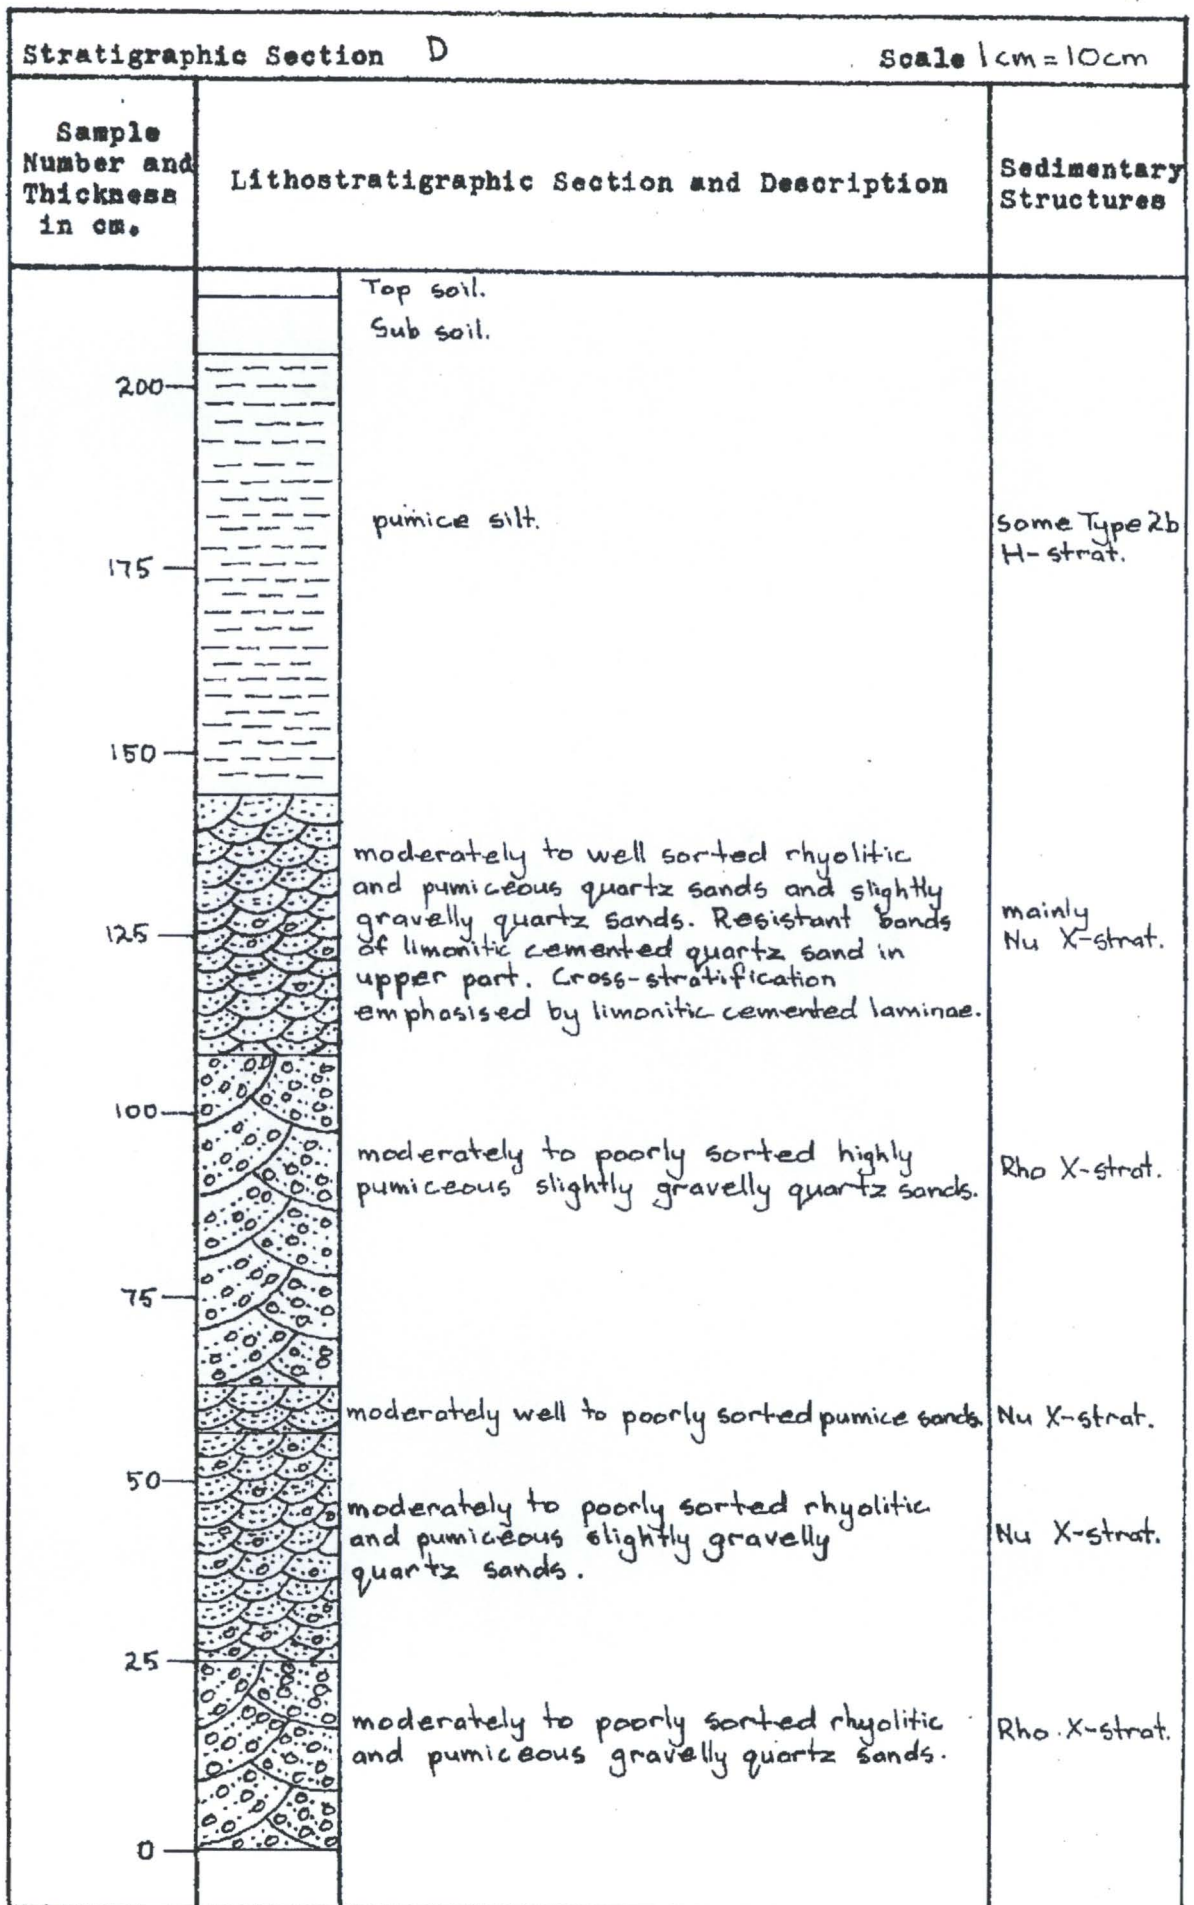 Stratigraphic Section D
Scale 1cm = 10cm
Sample
Number and
Thickness
in cm.
Lithostratigraphic Section and Description
Sedimentary
Structures
Top soil.
Sub soil.
200
pumice silt.
some Type 2b
H-strat.
175
150
moderately to well sorted rhyolitic
and pumiceous quartz sands and slightly
gravelly quartz sands. Resistant bands
of limonitic cemented quartz sand in
upper part. Cross-stratification
emphasised by limonitic cemented laminae.
mainly
Nu X-strat.
125
100
moderately to poorly sorted highly
pumiceous slightly gravelly quartz sands.
Rho X-strat.
75
moderately well to poorly sorted pumice sands.
Nu X-strat.
50
moderately to poorly sorted rhyolitic
and pumiceous slightly gravelly
quartz sands.
Nu X-strat.
25
moderately to poorly sorted rhyolitic
and pumiceous gravelly quartz sands.
Rho X-strat.
0